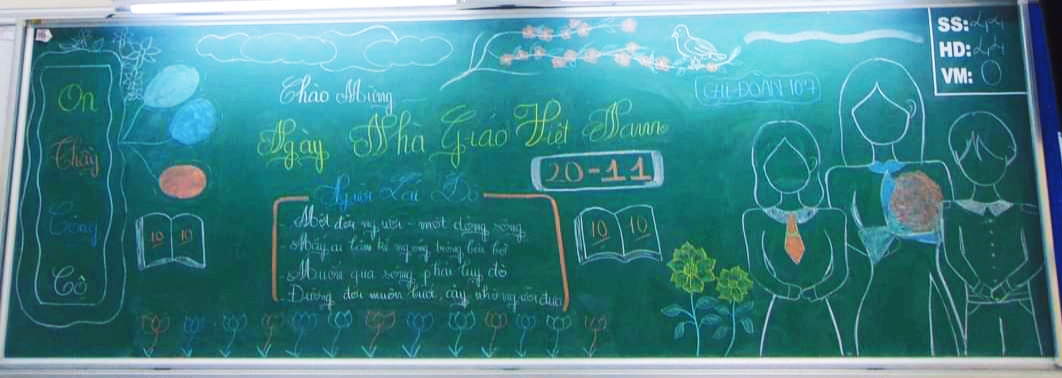 Ơn
Thầy
Công
Cô
Chào Mừng
Ngày Nhà Giáo Việt Nam
20-11
Người Lái Đò
Một đời người - một dòng sông
Mấy ai làm kẻ ngóng trông bến bờ
Muốn qua sông phải lụy đò
Đường đời muôn bước, cậy nhờ người đưa
10 10
10 10
CHI ĐOÀN 10*7
SS:
HD:
VM: 0